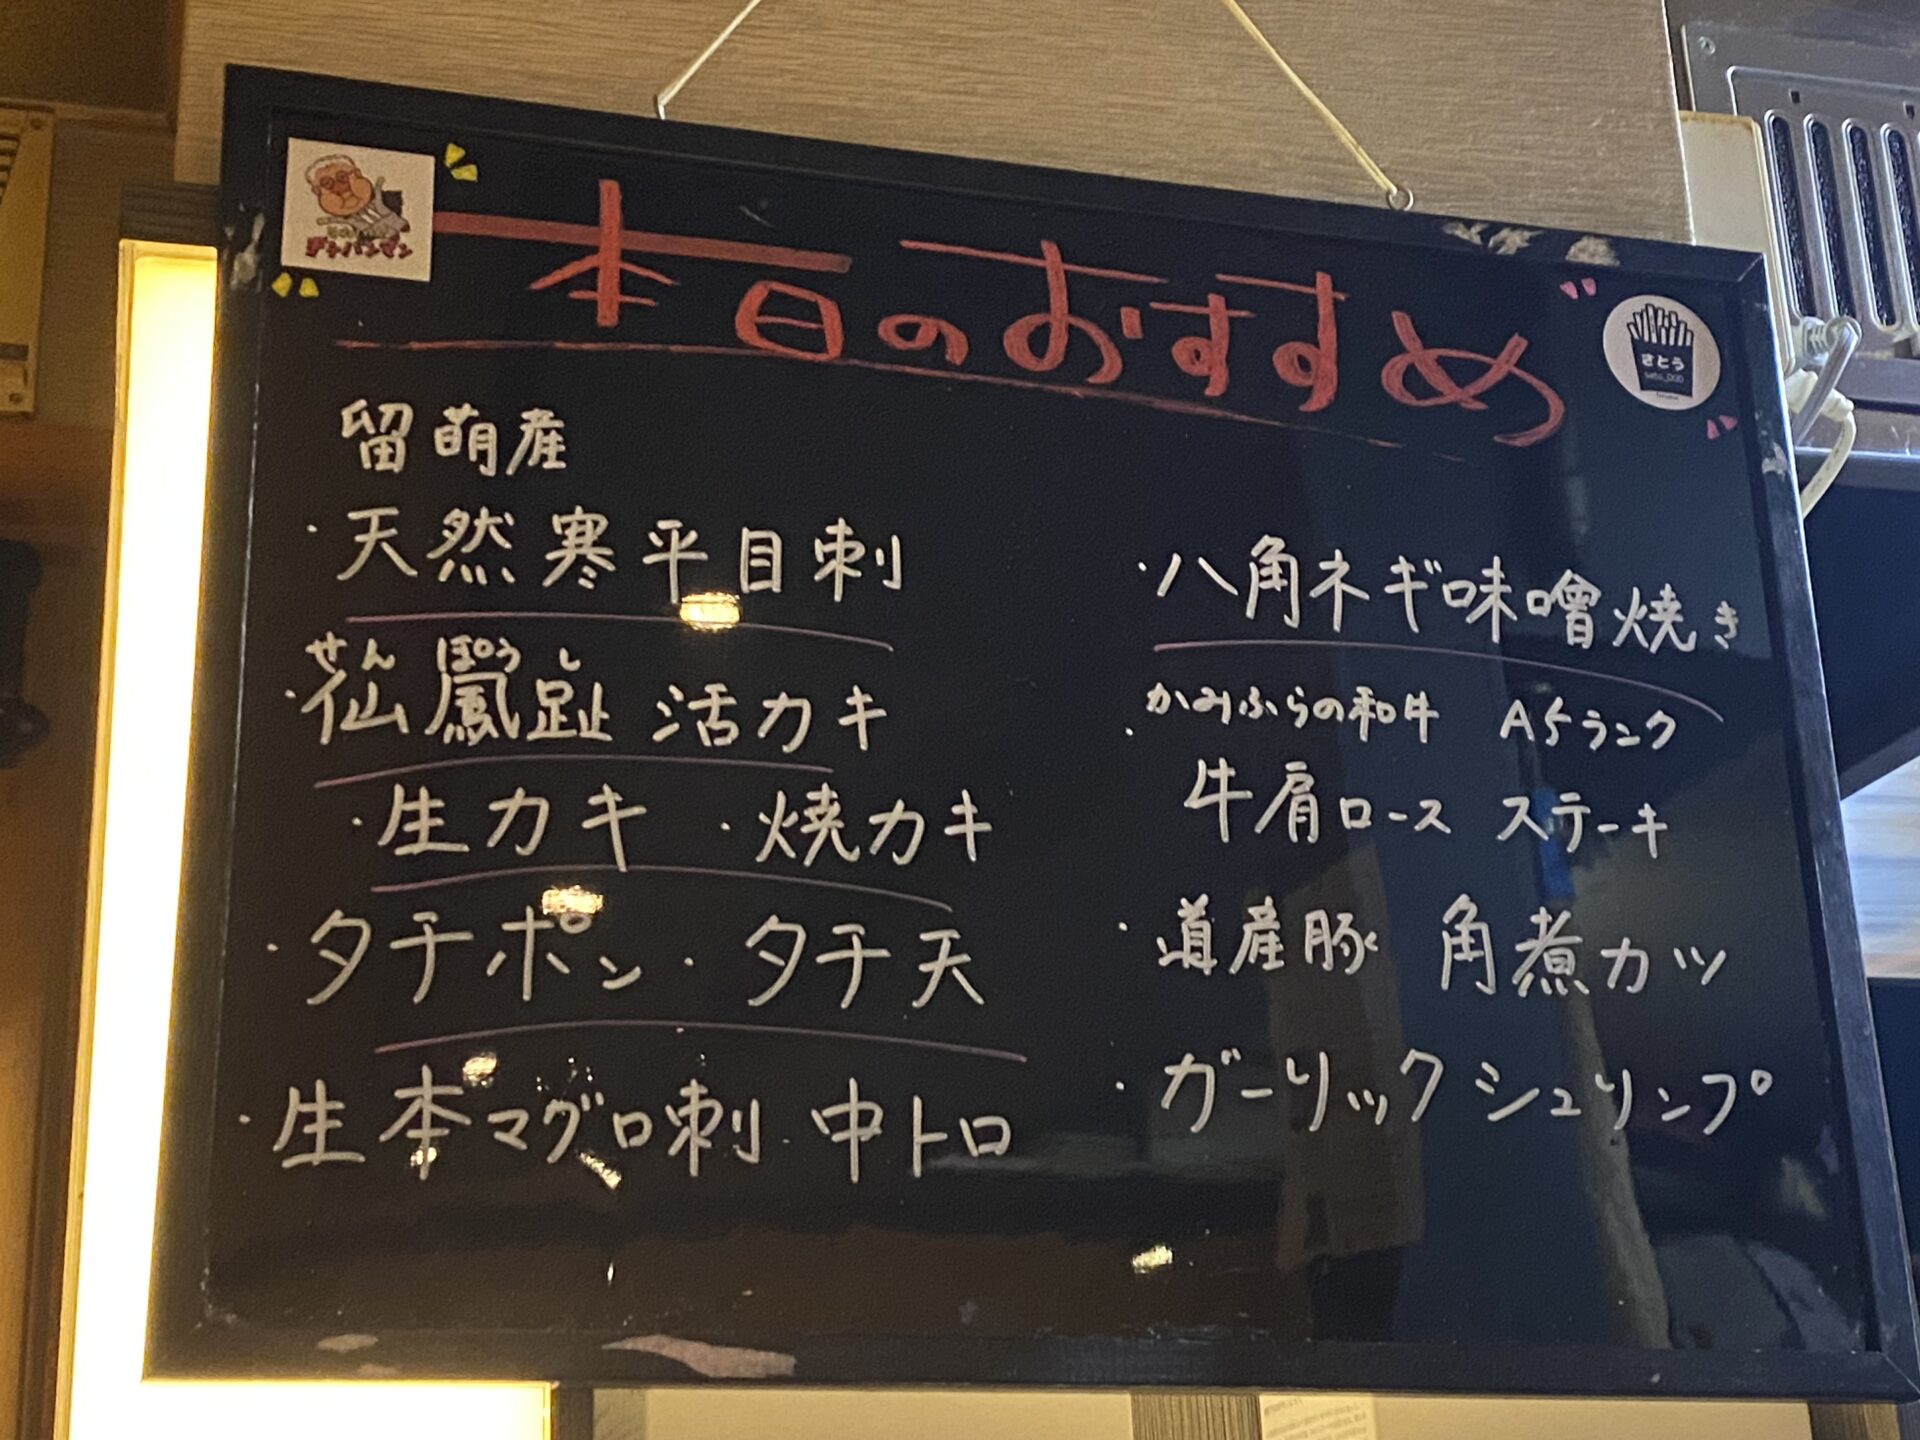 本日のおすすめ
さとう
留萌産
・天然寒平目刺
せんぽうし
・仙鳳趾 活カキ
・生カキ ・焼カキ
・タチポン ・タチ天
・生本マグロ刺 中トロ
・八角ネギ味噌焼き
・かみふらの和牛 A5ランク
牛肩ロース ステーキ
・道産豚 角煮カツ
・ガーリックシュリンプ